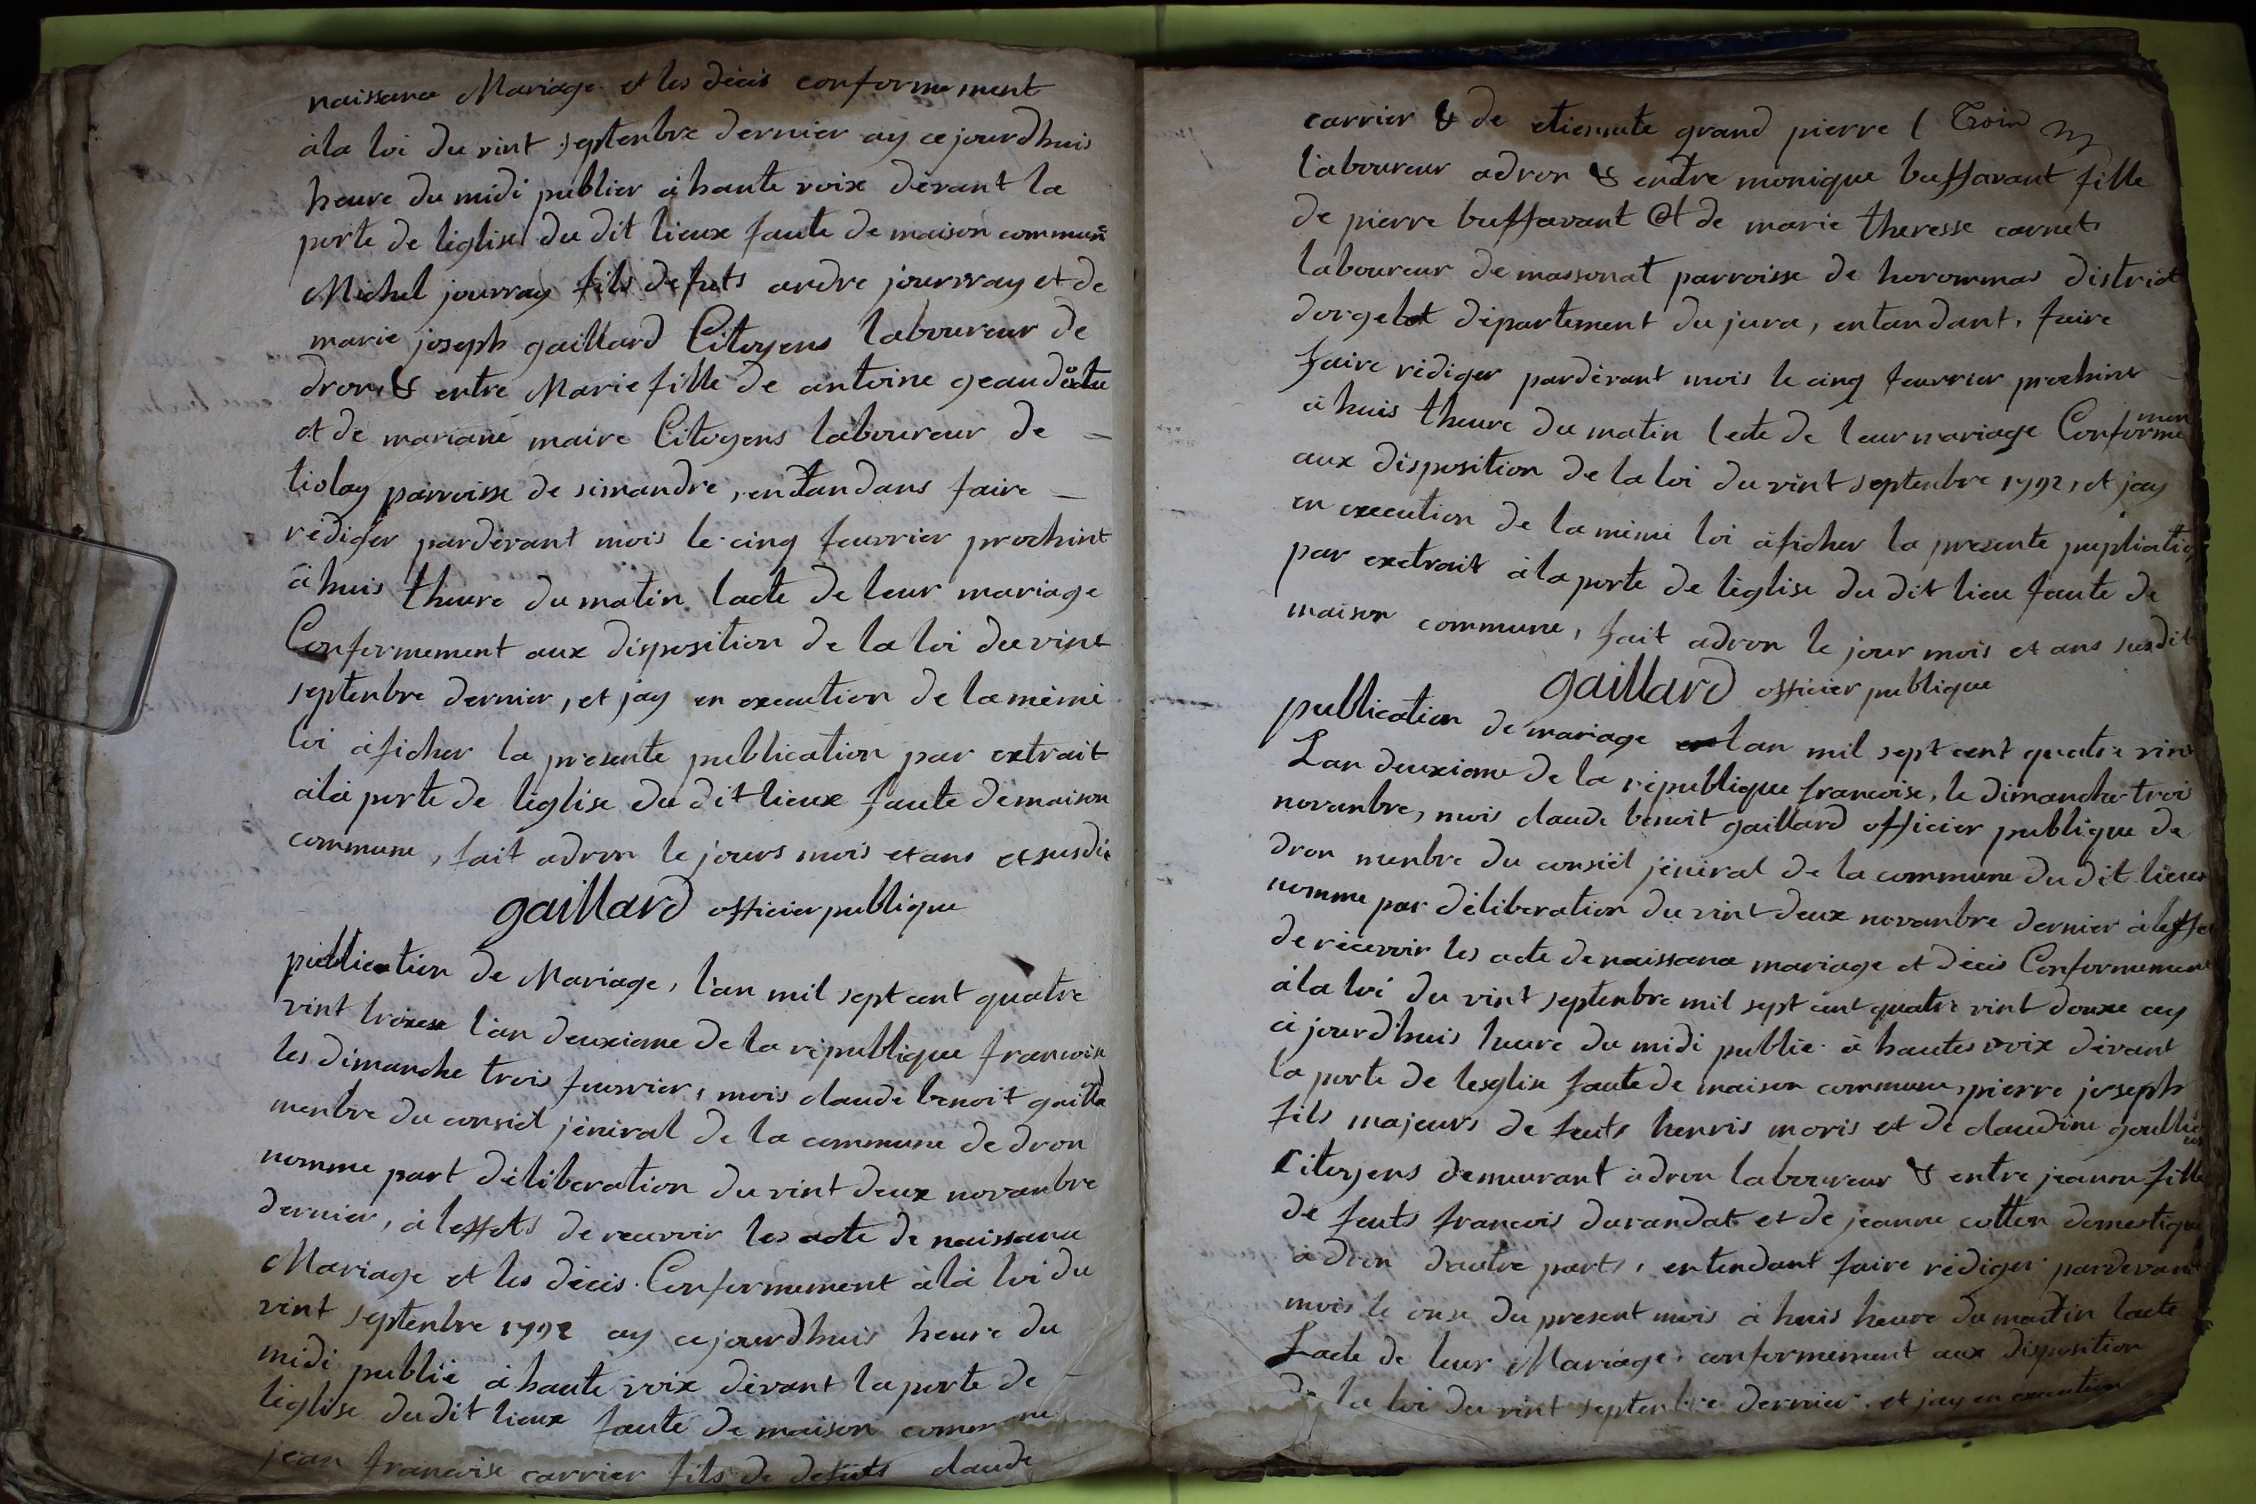 naissance Mariage et les décis conformement
àla loi du vint septenbre dernier ay cejourdhuis
heure du midi publier à haute voix dévant la
porte de léglise du dit lieux faute de maison commune
Michel jourray fils defuts andre jourray et de
marie joseph gaillard Citoyens laboureur de
dron & entre Marie fille de antoine geaudé
et de mariane maire Citoyens laboureur de
tiolay parroisse de simandre, entandans faire
rédiger pardévant mois le cinq feuvrier prochint
à huis theure du matin lacte de leur mariage
Conformement aux disposition de la loi du vint
septenbre dernier, et jay en execution de la mémé
loi àficher la presente publication par extrait
àlà porte de léglise du dit lieux faute demaison
commune, fait adron le jours mois et ans et susdit
gaillard officier publique
publication de Mariage, l'an mil sept cent quatre
vint troize l'an deuxieme de la république francoise
les dimanche trois feuvrier, mois claude benoit gailla
menbre du consiel jénéral de la commune de dron
nomme part déliberation du vint deux novanbre
dernier, à leffets de recevoir les acte de naissance
Mariage et les décis. Conformement àlà loi du
vint septenbre 1792 ay cejourdhuis heure du
midi publié à haute voix dévant la porte de
léglise du dit lieux faute de maison commune
jean francoise carrier fils de defuts claude
carrier & de etiennete grand pierre
laboureur adron & entre monique buffavant fille
de pierre buffavant et de marie theresse carnets
laboureur de massonat parroisse de district
dorgelet département du jura, entandant, faire
faire rédiger pardévant mois le cinq feuvrier prochint
à huis theure du matin lecte de leur mariage Conformemen
aux disposition de la loi du vint septenbre 1792, et jay
en execution de la mémé loi àficher la presente
par extrait à la porte de léglise du dit lieu faute de
maison commune, fait adron le jour mois et ans susdit
gaillard officier publique
publication de mariage lan mil sept cent quatre vint
Lan deuxieme de la république francoise, le dimanche trois
novanbre, mois claude benoit gaillard officier publique de
dron menbre du consiel jénéral de la commune du dit lieux
nomme par déliberation du vint deux novanbre dernier à leffet
de récevoir les acte de naissance mariage et décis Conformement
àla loi du vint septenbre mil sept cent quatre vint douze ay
cejourdhuis heure du midi publié à hautes voix dévant
la porte de lesglise faute de maison commune, pierre joseph
fils majeurs de feuts henris moris et de claudine
Citoyens demeurant àdron laboureur & entre jeanne fille
de feuts francois durandat et de jeanne cotton domestique
à dron dautre parts, entendant faire rédiger pardevant
mois le onse du present mois à huis heure du matin lacte
Lacte de leur Mariage, conformement aux disposition
de la loi du vint septenbre dernier et jay en execution